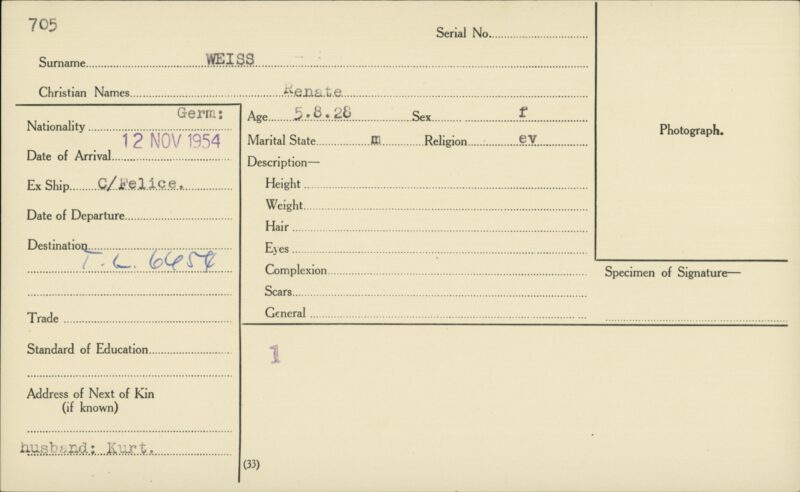 705
Serial No.
Surname WEISS
Christian Names Renate
Nationality Germ:
Date of Arrival 12 NOV 1954
Ex Ship C/Felice.
Date of Departure
Destination
T.L. 6454
Trade
Standard of Education
Address of Next of Kin
(if known)
husband: Kurt.
Age 5.8.28 Sex f
Marital State m Religion ev
Description—
Height
Weight
Hair
Eyes
Complexion
Scars
General
1
(33)
Photograph.
Specimen of Signature—